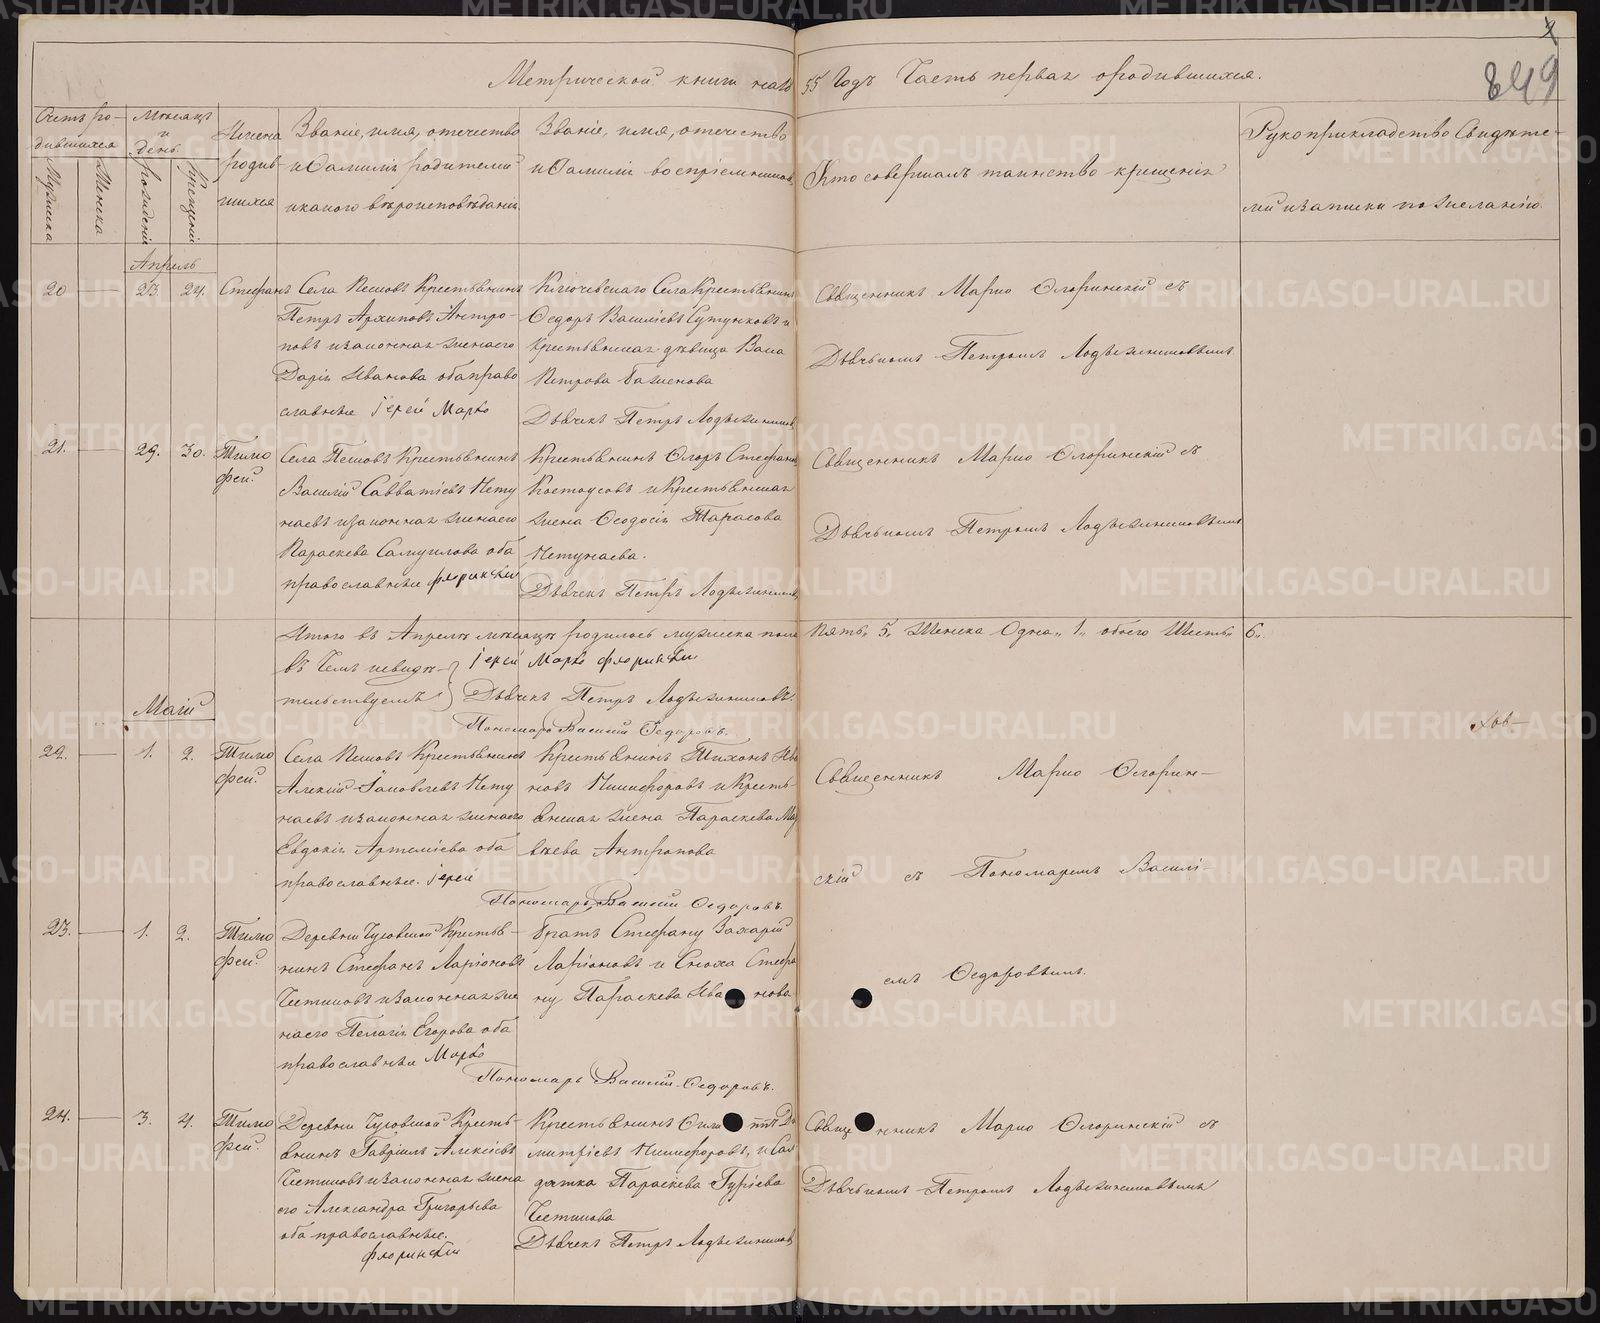 Метрической книги на 18 55 Годъ Часть первая о родившихся.
849
Счетъ ро-
дившихся
Мужеска
Женска
Месяцъ
и
день.
рожденія
крещенія
Имена
родив-
шихся
Званіе, имя, отечество
и Фамилія родителей
и какого вѣроисповѣданія.
Званіе, имя, отечество
и Фамилія воспріемниковъ
Кто совершалъ таинство крещенія
Рукоприкладство Свидѣте-
лей и записки по желанію.
Апрель
20 23. 24. Стефанъ
Села Пешовъ Крестьянинъ
Петръ Архиповъ Антро-
повъ и законная жена его
Дарія Иванова оба право
славные Іерей Марко
Ключевскаго Села Крестьянинъ
Ѳедоръ Василіевъ Сутунковъ и
крестьянская дѣвица Васа
Петрова Баженова
Дьячекъ Петръ
Священникъ Марко Флоринскій съ
Дьячькомъ Петромъ
21. 29. 30. Тимо
фей.
Села Пешовъ Крестьянинъ
Василій Савватіевъ Чету
наевъ и законная жена его
Параскева Самуилова оба
православные флоринскій
Крестьянинъ Флоръ Стефановъ
Костоусовъ и Крестьянская
жена Ѳеодосія Тарасова
Четунаева.
Дьячекъ Петръ
Священникъ Марко Флоринскій съ
Дьячькомъ Петромъ
Итого въ Апрелѣ месяцѣ родилось мужеска пола Пять „5„ Женска Одна „1„ обоего Шесть „6„
въ Чемъ и свидѣ-
тельствуемъ
Іерей Марко флоринскій
Дьячекъ Петръ
Пономарь Василій Ѳедоровъ.
Маій
22. 1. 2. Тимо
фей.
Села Пешовъ Крестьянинъ
Алексій Іаковлевъ Чету
наевъ и законная жена его
Евдокія Артеміева оба
православные. Іерей
Крестьянинъ Тихонъ Ива
новъ Никифоровъ и Кресть-
янская жена Параскева Мат
вѣева Антропова
Пономарь Василій Ѳедоровъ.
Священникъ Марко Флорин-
скій съ Пономаремъ Василі-
емъ Ѳедоровымъ.
23. 1. 2. Тимо
фей.
Деревни Чусовской Крестья-
нинъ Стефанъ Ларіоновъ
и законная же
на его Пелагія Егорова оба
православные Марко
Братъ Стефану Захарій
Ларіоновъ и Сноха Стефа
ну Параскева Ива нова
Пономарь Василій Ѳедоровъ.
24. 3. 4. Тимо
фей.
Деревни Чусовской Кресть-
янинъ Гавріилъ Алексіевъ
и законная жена
его Александра Григорьева
оба православные.
флоринскій
Крестьянинъ
митріевъ Никифоровъ, и Сол
датка Параскева Гуріева
Дьячекъ Петръ
Священникъ Марко Флоринскій съ
Дьячькомъ Петромъ
METRIKI.GASO-URAL.RU